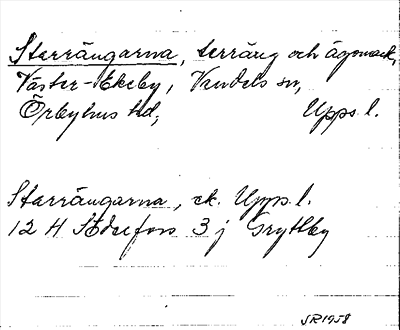 Starrängarna, terräng och ägomark,
Väster-Ekeby, Vendels sn,
Örbyhus hd, Upps. l.
Starrängarna, ek. Upps. l.
12 H Söderfors 3 j Gryttby
SR1958